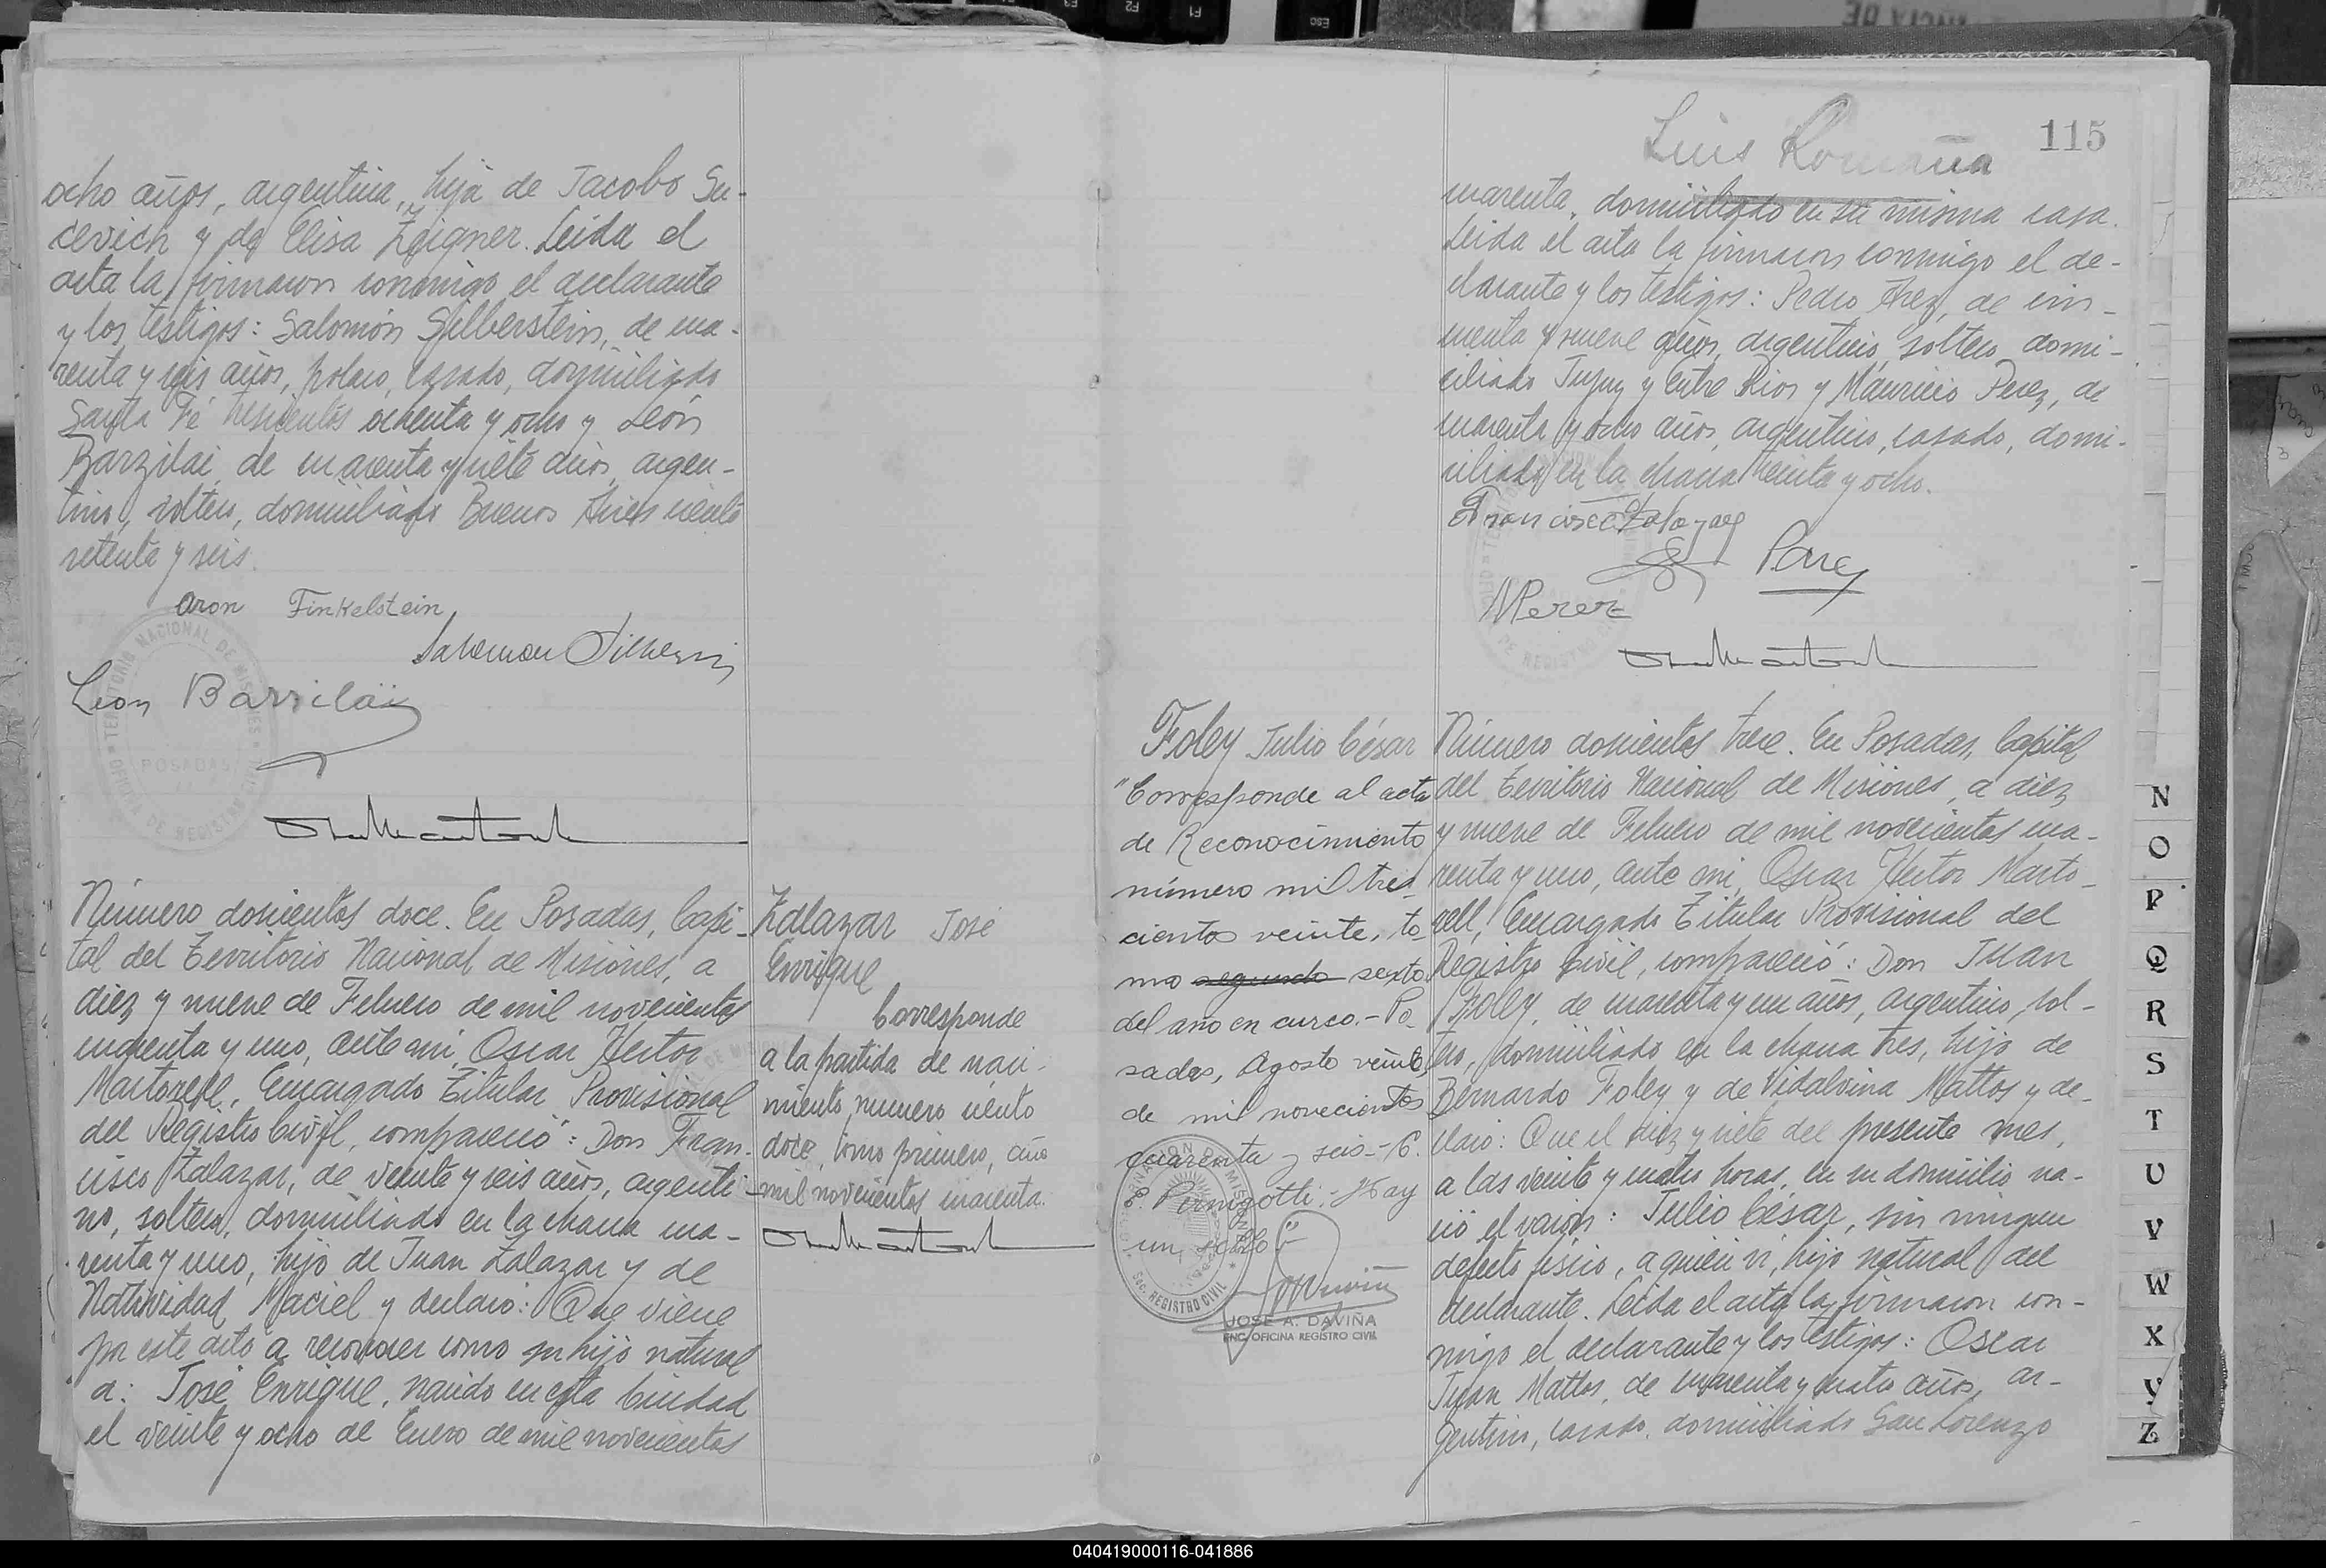 ocho años, argentina, hija de Jacobo Su-
cevich y de Elisa Zeigner. Leida el
acta la firmaron conmigo el declarante
y los testigos: Salomón Silberstein, de cua-
renta y seis años, polaco, casado, domiciliado
Santa Fé trescientos ochenta y ocho y León
Barzilai de cuarenta y siete años, argen-
tino, soltero, domiciliado Buenos Aires ciento
setenta y seis.
Aron Finkelstein
Leon Barzilai
TERRITORIO NACIONAL DE MISIONES
POSADAS
OFICINA DE REGISTRO CIVIL
Número doscientos doce. En Posadas, Capi-
tal del Territorio Nacional de Misiones, a
diez y nueve de Febrero de mil novecientos
cuarenta y uno, ante mi, Oscar Hector
Martorell, Encargado Titular Provisional
del Registro Civil, compareció: Don Fran-
cisco Zalazar, de veinte y seis años, argenti-
no, soltero, domiciliado en la chacra cua-
renta y uno, hijo de Juan Zalazar y de
Natividad Maciel y declaró: Que viene
por este acto a reconocer como su hijo natural
a: José Enrique, nacido en esta Ciudad
el veinte y ocho de Enero de mil novecientos
Zalazar José
Enrique
Corresponde
a la partida de naci-
miento numero ciento
doce, tomo primero, año
mil novecientos cuarenta.
Luis Romaña
115
cuarenta, domiciliado en su misma casa.
Leida el acta la firmaron conmigo el de-
clarante y los testigos: Pedro Arez, de cin-
cuenta y nueve años, argentino, soltero, domi-
ciliado Jujuy y Entre Rios y Mauricio Perez, de
cuarenta y ocho años, argentino, casado, domi-
ciliado en la chacra treinta y ocho.
Francisco Zalazar
M Perez
Foley Julio César
"Corresponde al acta
de Reconocimiento
número mil tres-
cientos veinte, to-
mo segundo sexto
del año en curso.- Po-
sadas, Agosto veinte
de mil novecientos
cuarenta y seis.- C.
Pernigotti.- Hay
un sello
SEC. REGISTRO CIVIL
JOSE A. DAVIÑA
ENC. OFICINA REGISTRO CIVIL
Número doscientos trece. En Posadas, Capital
del Territorio Nacional de Misiones, a diez
y nueve de Febrero de mil novecientos cua-
renta y uno, ante mi, Oscar Hector Marto-
rell, Encargado Titular Provisional del
Registro Civil, compareció: Don Juan
Foley, de cuarenta y un años, argentino, sol-
tero, domiciliado en la chacra tres, hijo de
Bernardo Foley y de Vidalvina Mattos y de-
claró: Que el diez y siete del presente mes,
a las veinte y cuatro horas, en su domicilio na-
ció el varón: Julio César, sin ningun
defecto fisico, a quien vi, hijo natural del
declarante. Leida el acta la firmaron con-
migo el declarante y los testigos: Oscar
Juan Mattos, de cuarenta y cuatro años, ar-
gentino, casado, domiciliado San Lorenzo
N
O
P
Q
R
S
T
U
V
W
X
Y
Z
040419000116-041886